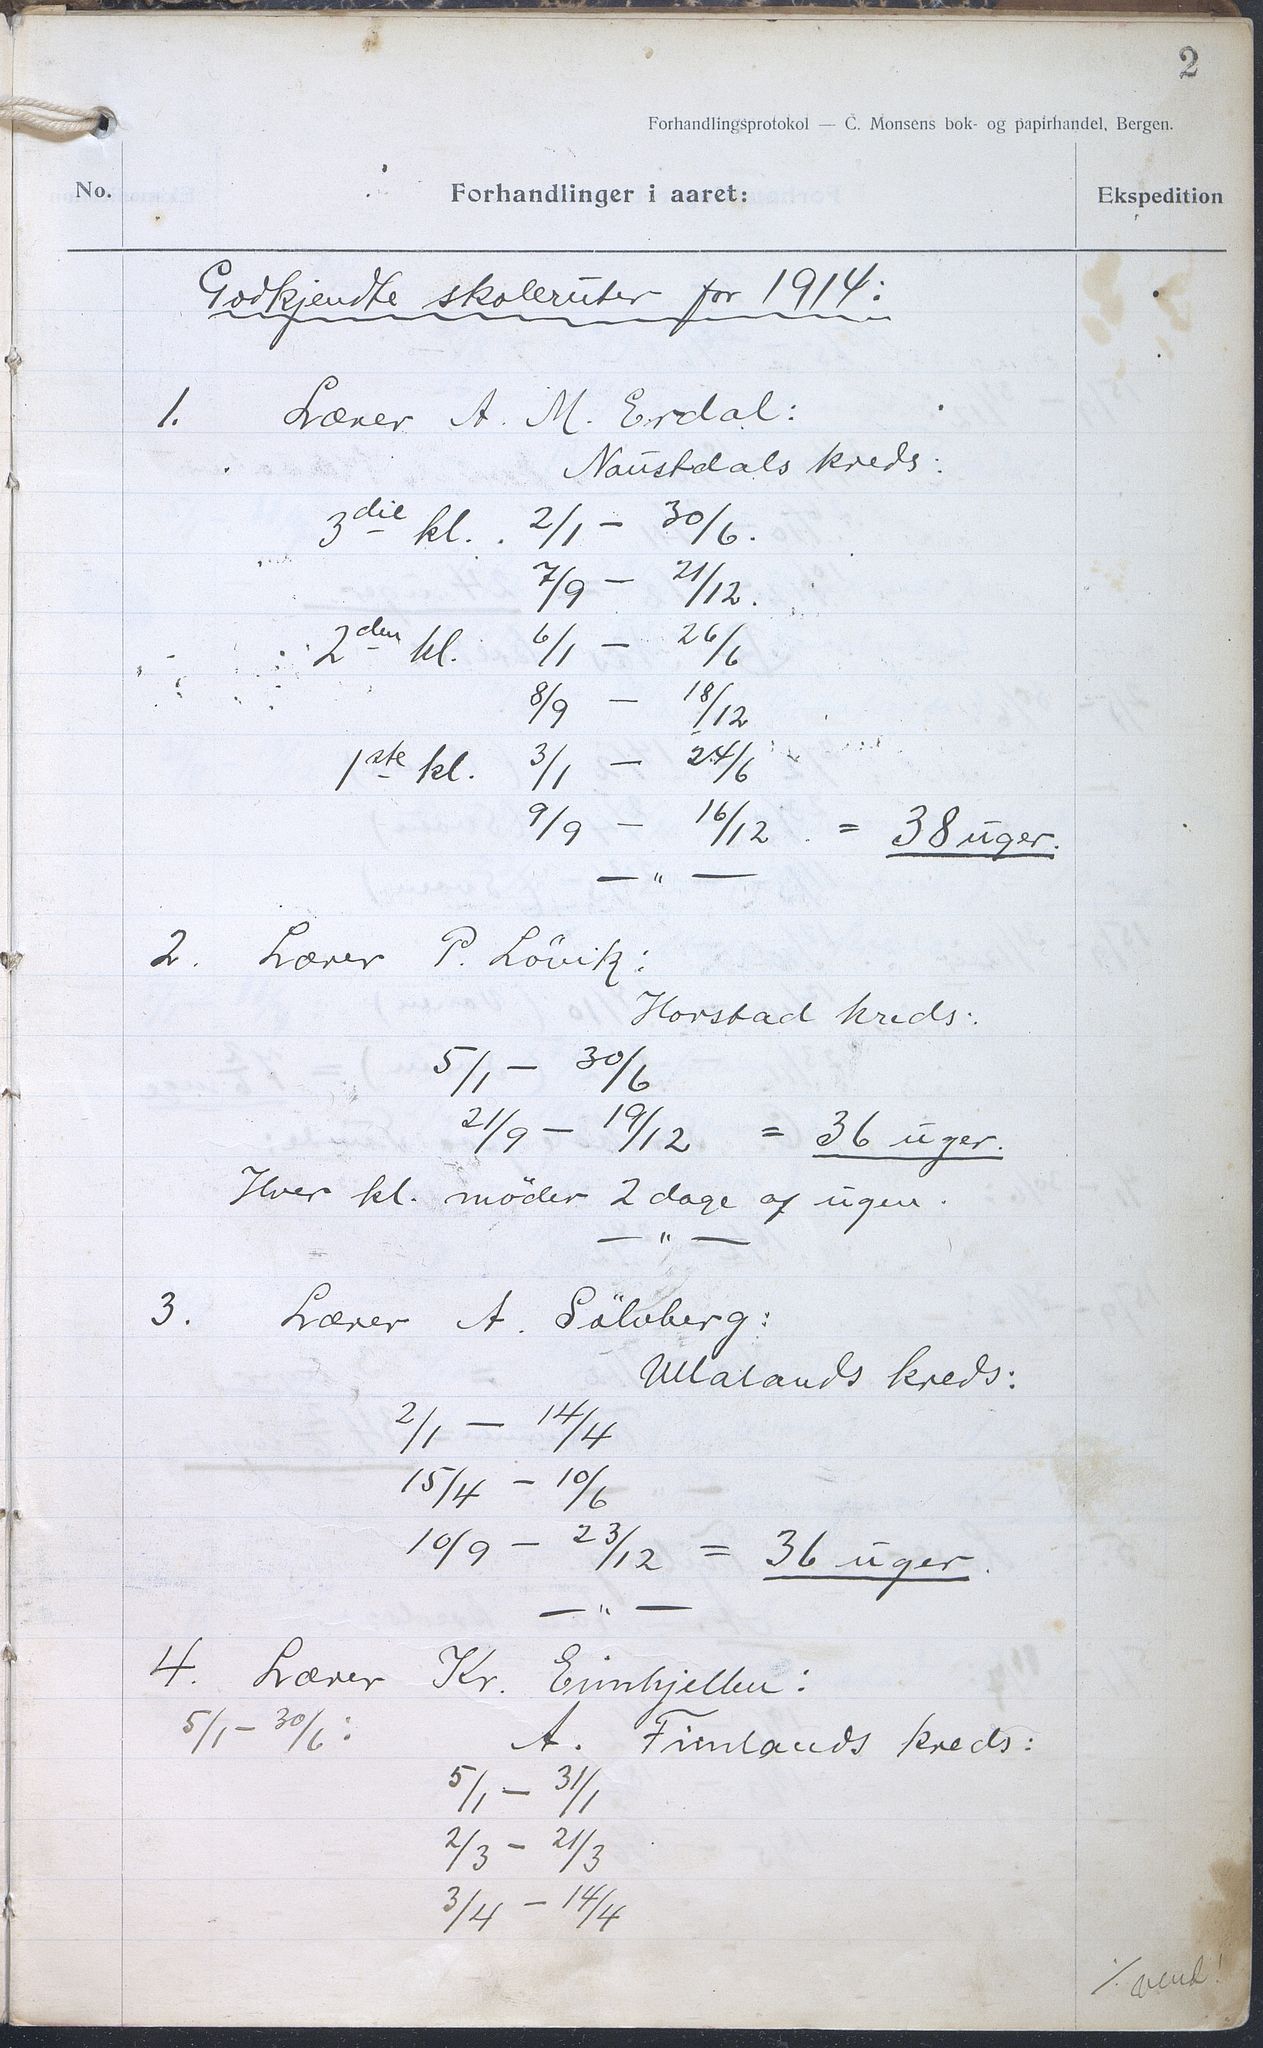 2
Forhandlingsprotokol — C. Monsens bok- og papirhandel, Bergen.
No. Forhandlinger i aaret: Ekspedition
Godkjendte skoleruter for 1914:
1. Lærer A. M. Erdal:
Naustdals kreds:
3die kl. 2/1 — 30/6.
7/9 — 21/12.
2den kl. 6/1 — 26/6
8/9 — 18/12
1ste kl. 3/1 — 24/6
9/9 — 16/12 = 38 uger.
— " —
2. Lærer P. Lövik:
Horstad kreds:
5/1 — 30/6
21/9 — 19/12 = 36 uger.
Hver kl. möder 2 dage af ugen.
— " —
3. Lærer A. Sölvberg:
Ullalands kreds:
2/1 — 14/4
15/4 — 10/6
10/9 — 23/12 = 36 uger.
— " —
4. Lærer Kr. Eimhjellen:
5/1 — 30/6: A. Fimlands kreds:
5/1 — 31/1
2/3 — 21/3
3/4 — 14/4
./. vend!